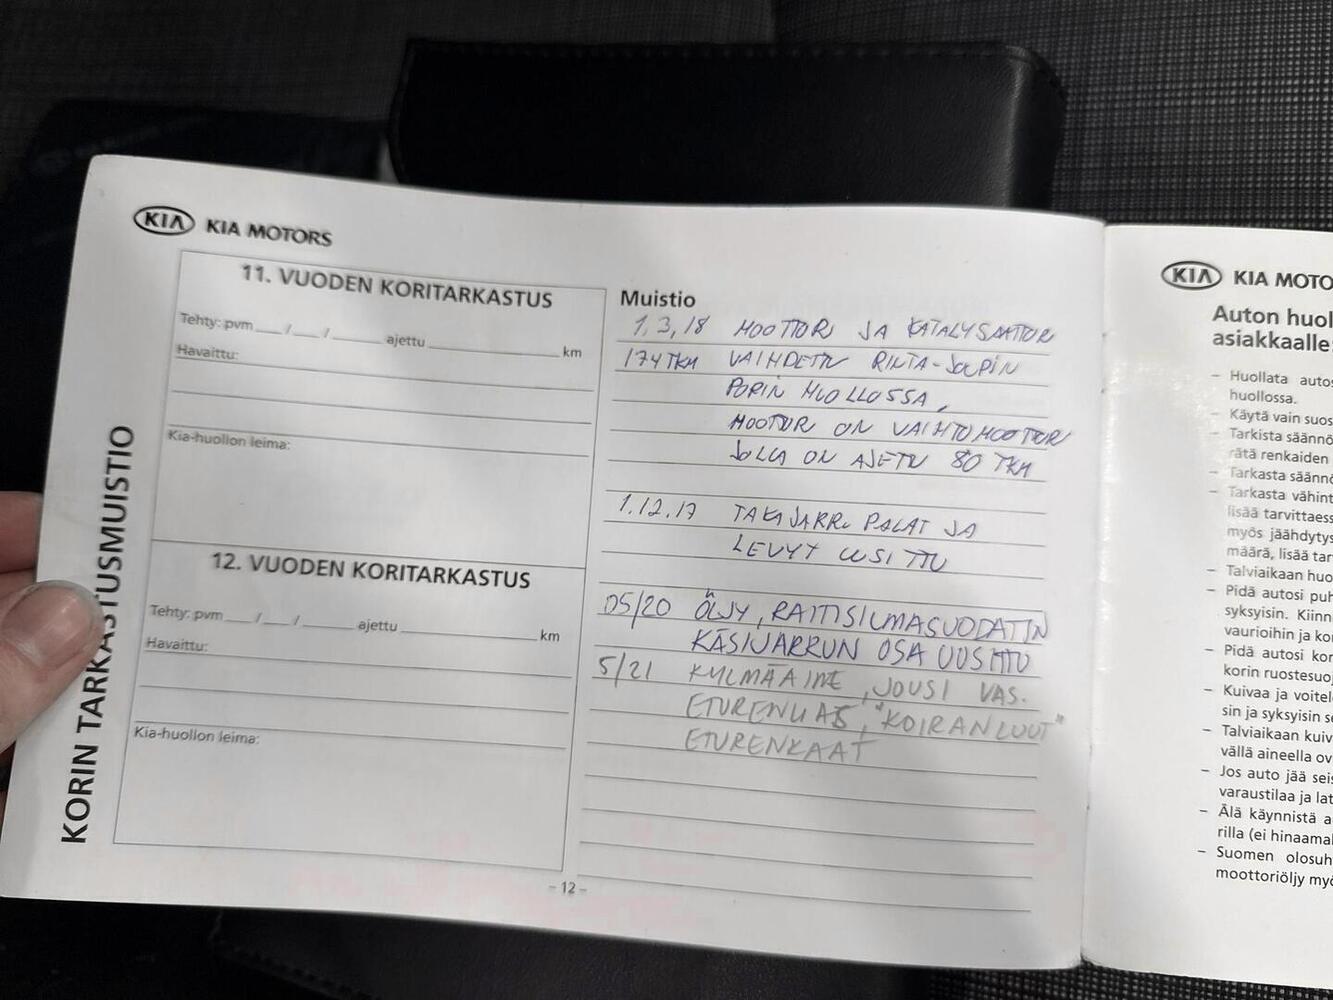 KIA KIA MOTORS
KORIN TARKASTUSMUISTIO
11. VUODEN KORITARKASTUS
Tehty: pvm ___/___/______ ajettu ______________ km
Havaittu:
Kia-huollon leima:
12. VUODEN KORITARKASTUS
Tehty: pvm ___/___/______ ajettu ______________ km
Havaittu:
Kia-huollon leima:
Muistio
1.3.18 MOOTTORI JA KATALYSAATTORI
174 TKM VAIHDETTU RINTA-JOUPIN
PORIN HUOLLOSSA,
MOOTTORI ON VAIHTOMOOTTORI
JOLLA ON AJETTU 80 TKM
1.12.17 TAKAJARRU PALAT JA
LEVYT UUSITTU
05/20 ÖLJY, RAITISILMASUODATIN
KÄSIJARRUN OSA UUSITTU
5/21 KYLMÄAINE, JOUSI VAS.
"KOIRANLUUT"
ETURENKAAT
- 12 -
KIA KIA MOTO
Auton huol
asiakkaalle
– Huollata autos
huollossa.
– Käytä vain suos
– Tarkista säännö
rätä renkaiden
– Tarkasta säännö
– Tarkasta vähint
lisää tarvittaess
myös jäähdytys
määrä, lisää tar
– Talviaikaan huo
– Pidä autosi puh
syksyisin. Kiinn
vaurioihin ja ko
– Pidä autosi kor
korin ruostesuoj
– Kuivaa ja voitel
sin ja syksyisin se
– Talviaikaan kuiv
vällä aineella ov
– Jos auto jää seis
varaustilaa ja lat
– Älä käynnistä a
rilla (ei hinaamal
– Suomen olosuh
moottoriöljy myö